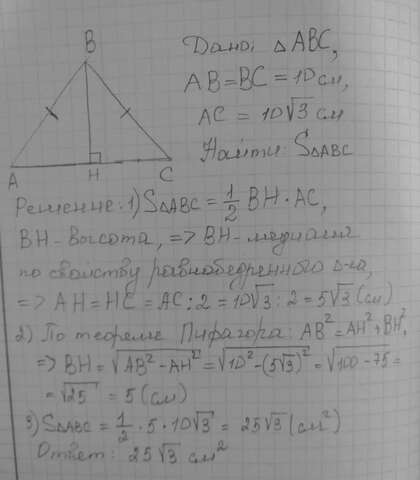 B
A
H
C
Дано: △ABC,
AB=BC=10см,
AC = 10√3 см
Найти: S△ABC
Решение: 1) S△ABC = 1/2 BH · AC,
BH - высота, => BH - медиана
по свойству равнобедренного △-ка,
=> AH = HC = AC : 2 = 10√3 : 2 = 5√3 (см)
2) По теореме Пифагора: AB² = AH² + BH²,
=> BH = √(AB² - AH²) = √(10² - (5√3)²) = √(100 - 75) =
= √25 = 5 (см)
3) S△ABC = 1/2 · 5 · 10√3 = 25√3 (см²)
Ответ: 25√3 см²